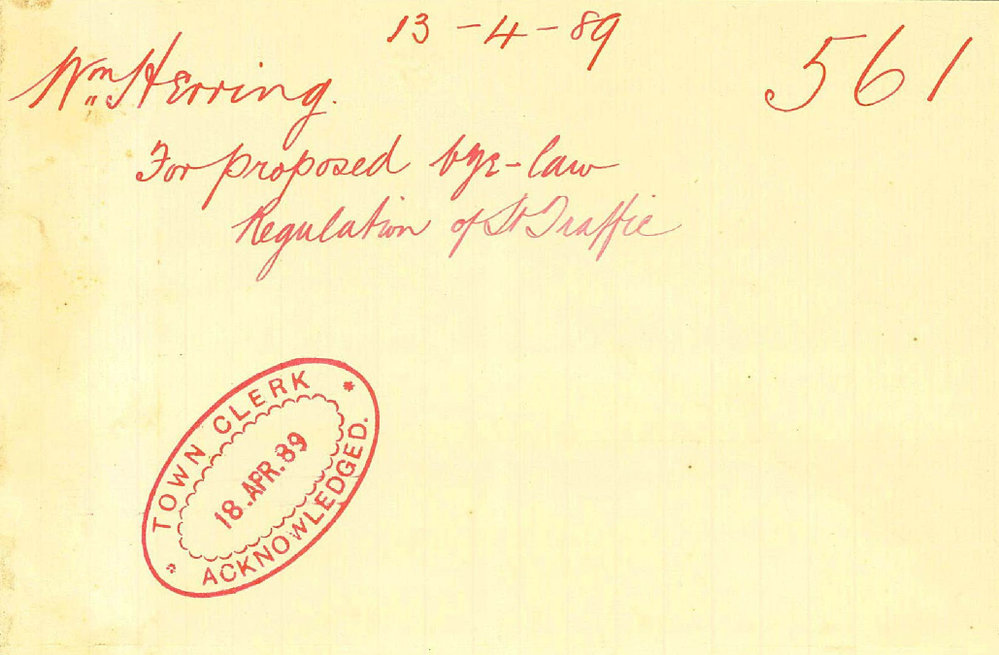 13-4-89
561
Wm Herring.
For proposed bye-law
Regulation of St Traffic
TOWN CLERK
18.APR.89
ACKNOWLEDGED.